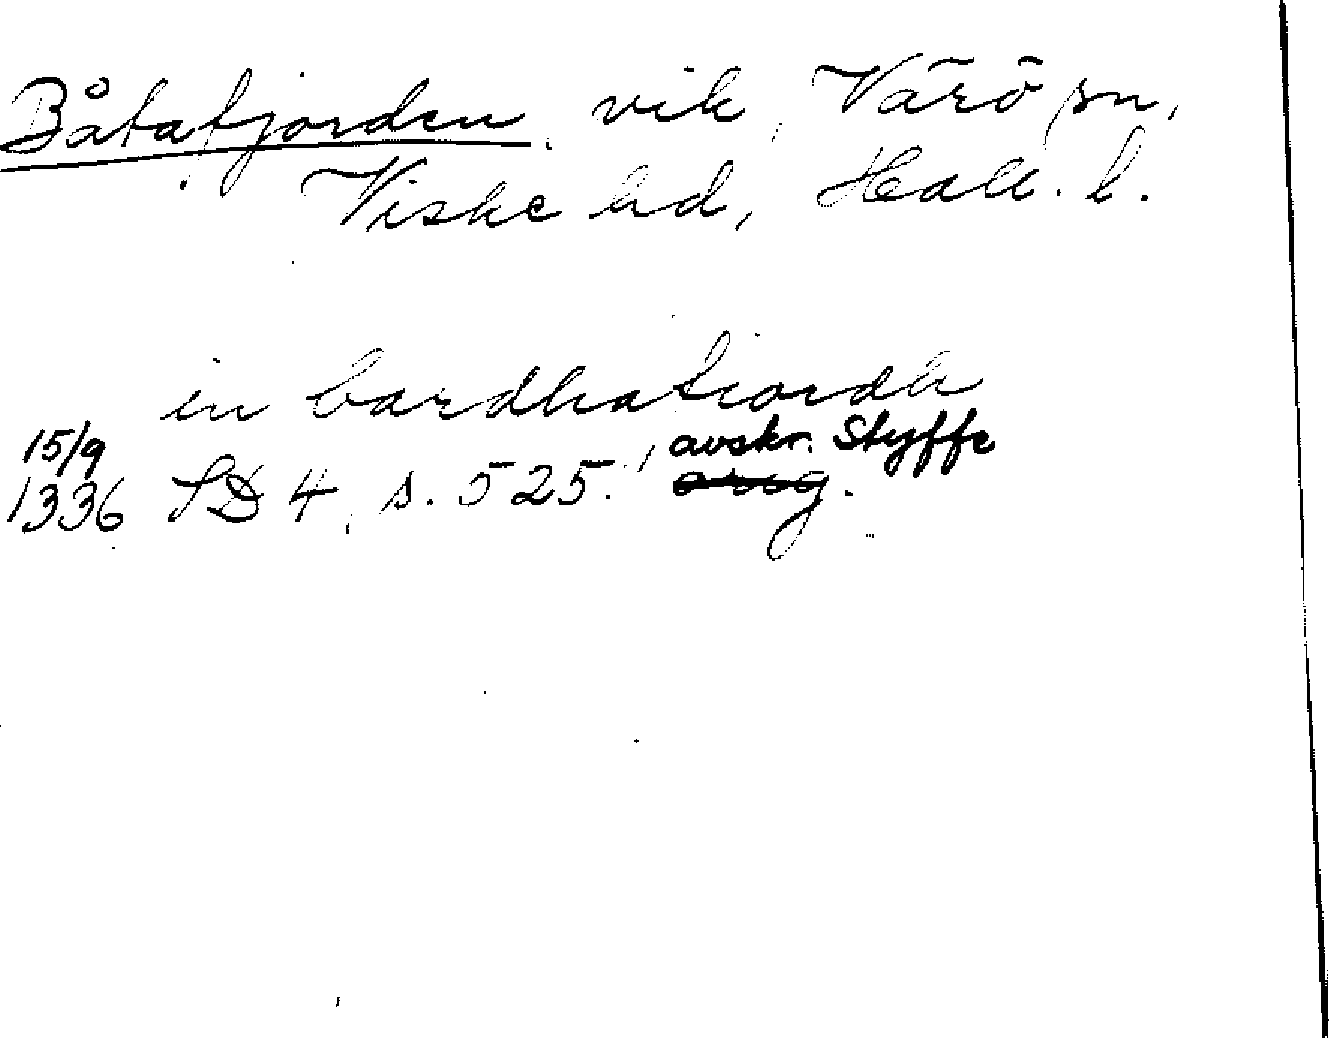 Båtafjorden, vik, Värö sn,
Viske hd, Hall. l.
in bardhafiordh
15/9 avskr. Styffe
1336 SD 4, s. 525. orig.